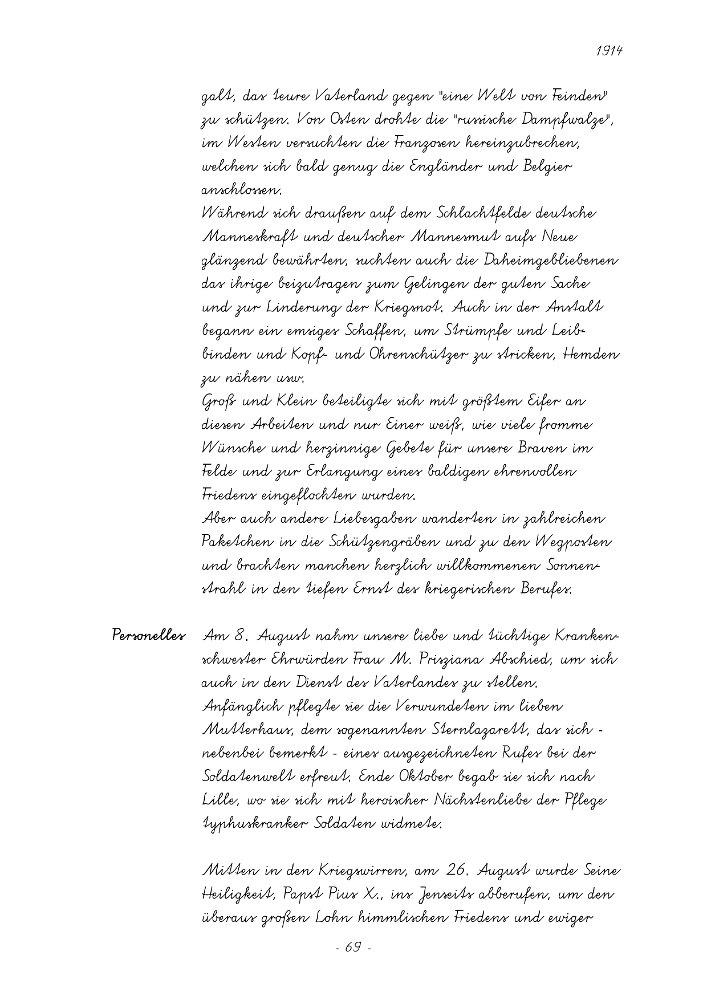 1914
galt, das teure Vaterland gegen "eine Welt von Feinden"
zu schützen. Von Osten drohte die "russische Dampfwalze",
im Westen versuchten die Franzosen hereinzubrechen,
welchen sich bald genug die Engländer und Belgier
anschlossen.
Während sich draußen auf dem Schlachtfelde deutsche
Manneskraft und deutscher Mannesmut aufs Neue
glänzend bewährten, suchten auch die Daheimgebliebenen
das ihrige beizutragen zum Gelingen der guten Sache
und zur Linderung der Kriegsnot. Auch in der Anstalt
begann ein emsiges Schaffen, um Strümpfe und Leib-
binden und Kopf- und Ohrenschützer zu stricken, Hemden
zu nähen usw.
Groß und Klein beteiligte sich mit größtem Eifer an
diesen Arbeiten und nur Einer weiß, wie viele fromme
Wünsche und herzinnige Gebete für unsere Braven im
Felde und zur Erlangung eines baldigen ehrenvollen
Friedens eingeflochten wurden.
Aber auch andere Liebesgaben wanderten in zahlreichen
Paketchen in die Schützengräben und zu den Wegposten
und brachten manchen herzlich willkommenen Sonnen-
strahl in den tiefen Ernst des kriegerischen Berufes.
Personelles Am 8. August nahm unsere liebe und tüchtige Kranken-
schwester Ehrwürden Frau M. Prisziana Abschied, um sich
auch in den Dienst des Vaterlandes zu stellen.
Anfänglich pflegte sie die Verwundeten im lieben
Mutterhaus, dem sogenannten Sternlazarett, das sich -
nebenbei bemerkt - eines ausgezeichneten Rufes bei der
Soldatenwelt erfreut. Ende Oktober begab sie sich nach
Lille, wo sie sich mit heroischer Nächstenliebe der Pflege
typhuskranker Soldaten widmete.
Mitten in den Kriegswirren, am 26. August wurde Seine
Heiligkeit, Papst Pius X., ins Jenseits abberufen, um den
überaus großen Lohn himmlischen Friedens und ewiger
- 69 -